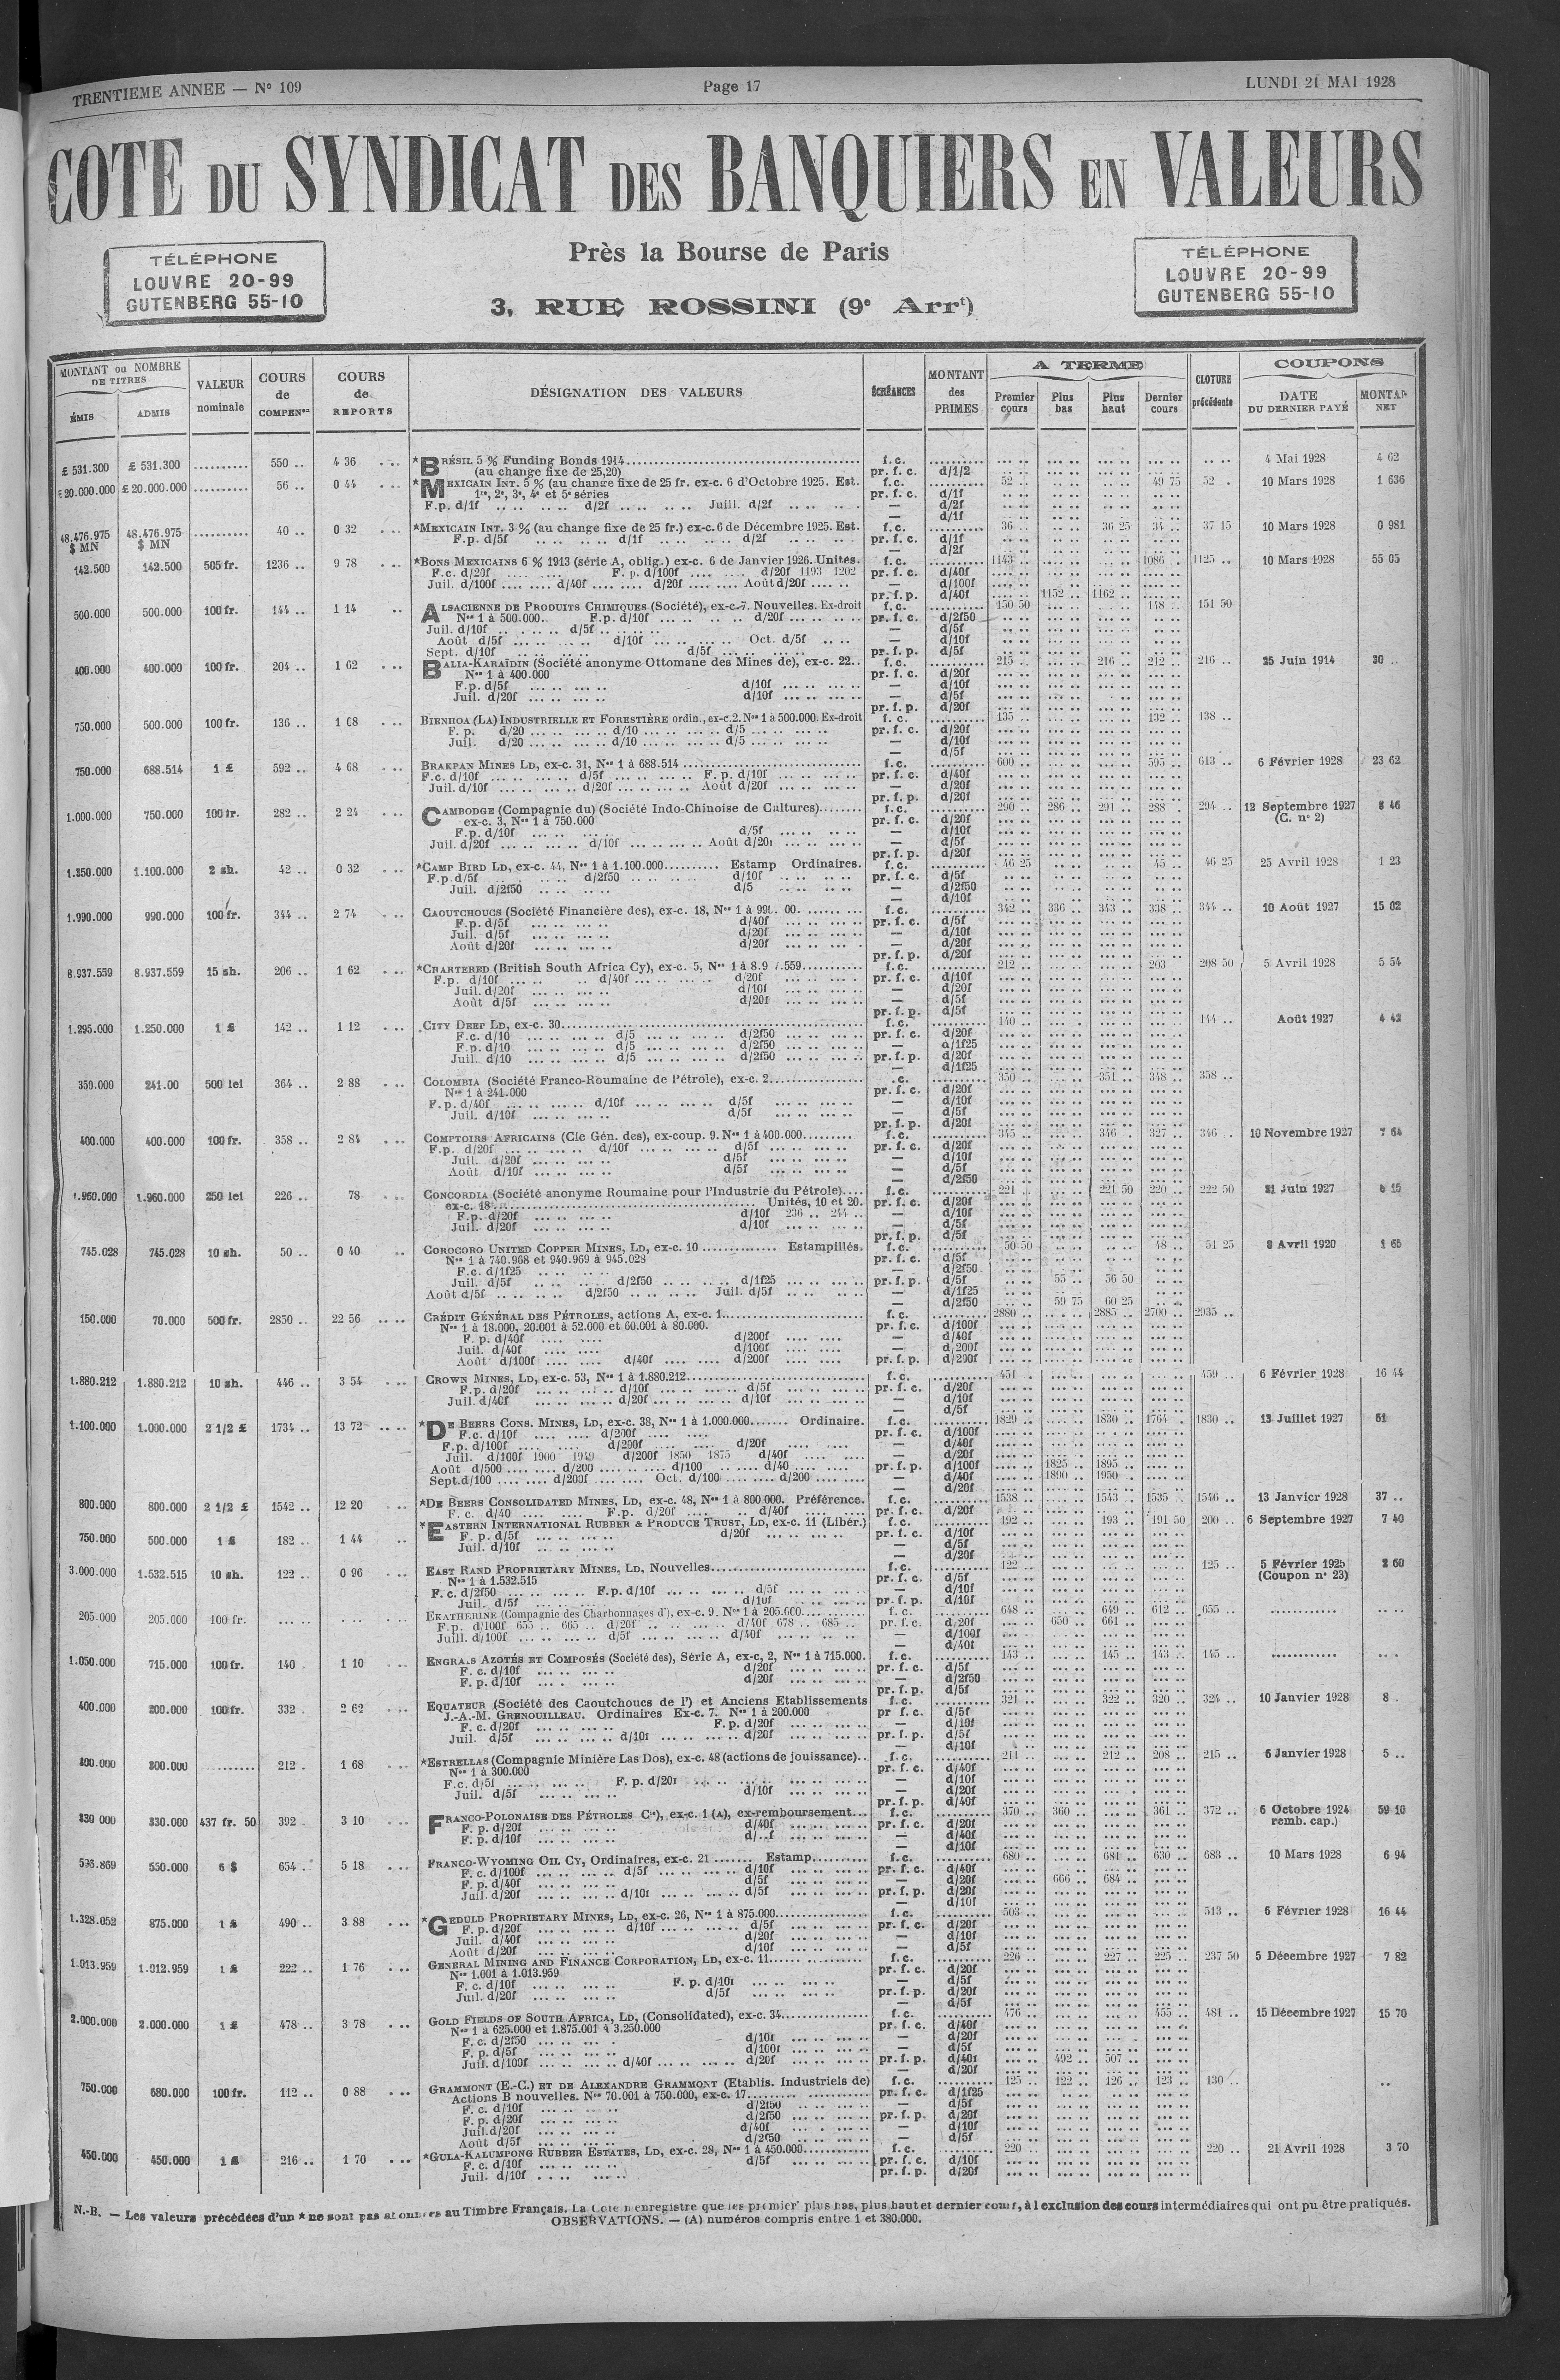 TRENTIEME ANNEE — N° 109
Page 17
LUNDI 21 MAI 1928
COTE DU SYNDICAT DES BANQUIERS EN VALEURS
TÉLÉPHONE
LOUVRE 20-99
GUTENBERG 55-10
Près la Bourse de Paris
3, RUE ROSSINI (9e Arrt)
TÉLÉPHONE
LOUVRE 20-99
GUTENBERG 55-10
MONTANT ou NOMBRE DE TITRES
ÉMIS ADMIS
VALEUR nominale
COURS de COMPENon
COURS de REPORTS
DÉSIGNATION DES VALEURS
ÉCHÉANCES
MONTANT des PRIMES
A TERME
Premier cours Plus bas Plus haut Dernier cours
CLOTURE précédente
COUPONS
DATE DU DERNIER PAYÉ
MONTAN NET
£ 531.300 £ 531.300 .......... 550 .. 4 36 *BRÉSIL 5 % Funding Bonds 1914 f.c. 4 Mai 1928 4 62
(au change fixe de 25,20) pr. f. c. d/1/2
£ 20.000.000 £ 20.000.000 .......... 56 .. 0 44 *MEXICAIN INT. 5 % (au change fixe de 25 fr. ex-c. 6 d'Octobre 1925. Est. f.c. 52 .. 49 75 52 . 10 Mars 1928 1 636
1re, 2e, 3e, 4e et 5e séries pr. f. c. d/1f
F.p. d/1f .. d/2f .. Juill. d/2f — d/2f
— d/1f
48.476.975 $ MN 48.476.975 $ MN .......... 40 .. 0 32 *MEXICAIN INT. 3 % (au change fixe de 25 fr.) ex-c. 6 de Décembre 1925. Est. f.c. 36 .. 36 25 34 .. 37 15 10 Mars 1928 0 981
F.p. d/5f .. d/1f .. d/2f pr. f. c. d/1f
— d/2f
142.500 142.500 505 fr. 1236 .. 9 78 *BONS MEXICAINS 6 % 1913 (série A, oblig.) ex-c. 6 de Janvier 1926. Unités. f.c. 1143 .. 1086 .. 1125 .. 10 Mars 1928 55 05
F.c. d/20f .... F. p. d/100f .... d/20f 1193 1202 pr. f. c. d/40f
Juil. d/100f .... d/40f .... d/20f .... Août d/20f .... — d/100f
pr. f. p. d/40f 1152 .. 1162 ..
500.000 500.000 100 fr. 144 .. 1 14 ALSACIENNE DE PRODUITS CHIMIQUES (Société), ex-c.7. Nouvelles. Ex-droit f.c. 150 50 148 .. 151 50
Nos 1 à 500.000. F.p. d/10f .. d/20f pr. f. c. d/2f50
Juil. d/10f .. d/5f — d/5f
Août d/5f .. d/10f .. Oct. d/5f — d/10f
Sept. d/10f .. d/5f pr. f. p. d/5f
400.000 400.000 100 fr. 204 .. 1 62 BALIA-KARAÏDIN (Société anonyme Ottomane des Mines de), ex-c. 22.. f.c. 215 .. 216 .. 212 .. 216 .. 25 Juin 1914 30 ..
Nos 1 à 400.000 pr. f. c. d/20f
F.p. d/5f .. d/10f — d/10f
Juil. d/20f .. d/10f — d/5f
pr. f. p. d/20f
750.000 500.000 100 fr. 136 .. 1 08 BIENHOA (LA) INDUSTRIELLE ET FORESTIÈRE ordin., ex-c.2. Nos 1 à 500.000. Ex-droit f. c. 135 .. 132 .. 138 ..
F. p. d/20 .. d/10 .. d/5 pr. f. c. d/20f
Juil. d/20 .. d/10 .. d/5 — d/10f
— d/5f
750.000 688.514 1 £ 592 .. 4 68 BRAKPAN MINES LD, ex-c. 31, Nos 1 à 688.514 f.c. 600 .. 595 .. 613 .. 6 Février 1928 23 62
F.c. d/10f .. d/5f .. F. p. d/10f pr. f. c. d/40f
Juil. d/10f .. d/20f .. Août d/20f — d/20f
pr. f. p. d/20f
1.000.000 750.000 100 fr. 282 .. 2 24 CAMBODGE (Compagnie du) (Société Indo-Chinoise de Cultures) f.c. 290 .. 286 .. 291 .. 288 294 .. 12 Septembre 1927 8 46
ex-c. 3, Nos 1 à 750.000 pr. f. c. d/20f (C. n° 2)
F.p. d/10f .. d/5f — d/10f
Juil. d/20f .. d/10f .. Août d/20f — d/5f
pr. f. p. d/20f
1.250.000 1.100.000 2 sh. 42 .. 0 32 *CAMP BIRD LD, ex-c. 44, Nos 1 à 1.100.000 Estamp Ordinaires. f.c. 46 25 45 .. 46 25 25 Avril 1928 1 23
F.p.d/5f .. d/2f50 .. d/10f pr. f. c. d/5f
Juil. d/2f50 .. d/5 — d/2f50
— d/10f
1.990.000 990.000 100 fr. 344 .. 2 74 CAOUTCHOUCS (Société Financière des), ex-c. 18, Nos 1 à f.c. 342 .. 336 .. 343 .. 338 .. 344 .. 10 Août 1927 15 02
F.p. d/5f .. d/40f pr. f. c. d/5f
Juil. d/5f .. d/20f — d/10f
Août d/20f .. d/20f — d/20f
pr. f. p. d/20f
8.937.559 8.937.559 15 sh. 206 .. 1 62 *CHARTERED (British South Africa Cy), ex-c. 5, Nos 1 à f.c. 212 .. 203 208 50 5 Avril 1928 5 54
F.p. d/10f .. d/40f .. d/20f pr. f. c. d/10f
Juil. d/20f .. d/10f — d/20f
Août d/5f .. d/20f — d/5f
pr. f. p. d/5f
1.295.000 1.250.000 1 £ 142 .. 1 12 CITY DEEP LD, ex-c. 30 f.c. 140 .. 144 .. Août 1927 4 42
F.c. d/10 .. d/5 .. d/2f50 pr. f. c. d/20f
F.p. d/10 .. d/5 .. d/2f50 — d/1f25
Juil. d/10 .. d/5 .. d/2f50 pr. f. p. d/20f
— d/1f25
350.000 241.00 500 lei 364 .. 2 88 COLOMBIA (Société Franco-Roumaine de Pétrole), ex-c. 2 .c. 350 .. 351 .. 348 .. 358 ..
Nos 1 à 241.000 pr. f. c. d/20f
F.p. d/40f .. d/10f .. d/5f — d/10f
Juil. d/10f .. d/5f — d/5f
pr. f. p. d/20f
400.000 400.000 100 fr. 358 .. 2 84 COMPTOIRS AFRICAINS (Cie Gén. des), ex-coup. 9. Nos 1 à 400.000 f.c. 345 .. 346 . 327 .. 346 . 10 Novembre 1927 7 64
F.p. d/20f .. d/10f .. d/5f pr. f. c. d/20f
Juil. d/20f .. d/5f — d/10f
Août d/10f .. d/5f — d/5f
— d/2f50
1.960.000 1.960.000 250 lei 226 .. 78 CONCORDIA (Société anonyme Roumaine pour l'Industrie du Pétrole) f.c. 221 .. 221 50 220 .. 222 50 21 Juin 1927 15
ex-c. 18 Unités, 10 et 20. pr. f. c. d/20f
F.p. d/20f .. d/10f 236 .. 244 .. — d/10f
Juil. d/20f .. d/10f — d/5f
pr. f. p. d/5f
745.028 745.028 10 sh. 50 .. 0 40 COROCORO UNITED COPPER MINES, LD, ex-c. 10 Estampillés. f.c. 50 50 48 .. 51 25 8 Avril 1920 1 65
Nos 1 à 740.968 et 940.969 à 945.028 pr. f. c. d/5f
F.c. d/1f25 — d/2f50
Juil. d/5f .. d/2f50 .. d/1f25 pr. f. p. d/5f 55 .. 56 50
Août d/5f .. d/2f50 .. Juil. d/5f — d/1f25
— d/2f50 59 75 60 25
150.000 70.000 500 fr. 2850 .. 22 56 CRÉDIT GÉNÉRAL DES PÉTROLES, actions A, ex-c. 1 f.c. 2880 .. 2885 .. 2700 .. 2935 ..
Nos 1 à 18.000, 20.001 à 52.000 et 60.001 à 80.000. pr. f. c. d/100f
F. p. d/40f .... d/200f — d/40f
Juil. d/40f .... d/100f — d/200f
Août d/100f .... d/40f .... d/200f pr. f. p. d/200f
1.880.212 1.880.212 10 sh. 446 .. 3 54 CROWN MINES, LD, ex-c. 53, Nos 1 à 1.880.212 f.c. 451 . 459 .. 6 Février 1928 16 44
F.p. d/20f .. d/10f .. d/5f pr. f. c. d/20f
Juil. d/40f .. d/20f .. d/10f — d/10f
— d/5f
1.100.000 1.000.000 2 1/2 £ 1734 .. 13 72 *DE BEERS CONS. MINES, LD, ex-c. 38, Nos 1 à 1.000.000 Ordinaire. f.c. 1829 .. 1830 .. 1764 . 1830 .. 13 Juillet 1927 61
F.c. d/10f .... d/200f pr. f. c. d/100f
F.p. d/100f .... d/200f .... d/20f — d/40f
Juil. d/100f 1900 1949 d/200f 1850 1875 d/40f — d/20f
Août d/500 .... d/200 .... d/100 .... d/40 pr. f. p. d/100f 1825 .. 1895 ..
Sept.d/100 .... d/200f .... Oct. d/100 .... d/200 — d/40f 1890 .. 1950 ..
— d/20f
800.000 800.000 2 1/2 £ 1542 .. 12 20 *DE BEERS CONSOLIDATED MINES, LD, ex-c. 48, Nos 1 à 800.000. Préférence. f.c. 1538 .. 1543 .. 1535 1546 .. 13 Janvier 1928 37 ..
F. c. d/40 .... F.p. d/20f .. d/40f pr. f. c. d/20f
750.000 500.000 1 £ 182 .. 1 44 *EASTERN INTERNATIONAL RUBBER & PRODUCE TRUST, LD, ex-c. 11 (Libér.) f.c. 192 .. 193 .. 191 50 200 .. 6 Septembre 1927 7 40
F. p. d/5f .. d/20f pr. f. c. d/10f
Juil. d/10f — d/5f
— d/20f
3.000.000 1.532.515 10 sh. 122 .. 0 96 EAST RAND PROPRIETARY MINES, LD, Nouvelles f.c. 122 .. 125 .. 5 Février 1925 2 60
Nos 1 à 1.532.515 pr. f. c. d/5f (Coupon n° 23)
F. c. d/2f50 .. F.p. d/10f .. d/5f — d/10f
Juil. d/5f .. d/10f pr. f. p. d/10f
205.000 205.000 100 fr. EKATHERINE (Compagnie des Charbonnages d'), ex-c. 9. Nos 1 à 205.000 f.c. 648 .. 649 .. 612 .. 655 ..
F.p. d/100f 655 .. 665 .. d/20f .. d/40f 678 .. 685 .. pr. f.c. d/20f 650 .. 661 ..
Juill. d/100f .. d/5f .. d/40f — d/100f
— d/40f
1.050.000 715.000 100 fr. 140 . 1 10 ENGRAIS AZOTÉS ET COMPOSÉS (Société des), Série A, ex-c, 2, Nos 1 à 715.000. f.c. 143 .. 145 .. 143 .. 145 ..
F. c. d/10f .. d/20f pr. f. c. d/5f
F. p. d/10f .. d/20f — d/2f50
pr. f. p. d/5f
400.000 200.000 100 fr. 332 . 2 62 EQUATEUR (Société des Caoutchoucs de l') et Anciens Etablissements f.c. 321 .. 322 .. 320 .. 324 .. 10 Janvier 1928 8 .
J.-A.-M. GRENOUILLEAU. Ordinaires Ex-c. 7. Nos 1 à 200.000 pr f. c. d/5f
F. c. d/20f .. F. p. d/20f — d/10f
Juil. d/5f .. d/10f .. d/20f pr. f. p. d/5f
— d/10f
300.000 300.000 .......... 212 . 1 68 *ESTRELLAS (Compagnie Minière Las Dos), ex-c. 48 (actions de jouissance).. f.c. 211 .. 212 .. 208 .. 215 .. 6 Janvier 1928 5 ..
Nos 1 à 300.000 pr. f. c. d/40f
F.c. d/5f .. F. p. d/20f — d/10f
Juil. d/5f .. d/10f — d/20f
pr. f. p. d/40f
330 000 330.000 437 fr. 50 392 . 3 10 FRANCO-POLONAISE DES PÉTROLES Cie), ex-c. 1 (A), ex-remboursement... f.c. 370 .. 360 .. 361 .. 372 .. 6 Octobre 1924 59 10
F. p. d/20f .. d/40f pr. f. c. d/20f remb. cap.)
F. p. d/10f — d/40f
— d/10f
536.869 550.000 6 $ 654 . 5 18 FRANCO-WYOMING OIL CY, Ordinaires, ex-c. 21 Estamp. f.c. 680 .. 681 .. 630 .. 683 .. 10 Mars 1928 6 94
F. c. d/100f .. d/5f .. d/10f pr. f. c. d/40f
F. p. d/40f .. d/5f — d/20f 666 .. 684 ..
Juil. d/20f .. d/10f .. d/5f pr. f. p. d/20f
— d/10f
1.328.052 875.000 1 £ 490 .. 3 88 *GEDULD PROPRIETARY MINES, LD, ex-c. 26, Nos 1 à 875.000 f.c. 503 .. 513 .. 6 Février 1928 16 44
F. p. d/20f .. d/10f .. d/5f pr. f. c. d/20f
Juil. d/40f .. d/20f — d/10f
Août d/20f .. d/10f — d/5f
1.013.959 1.012.959 1 £ 222 .. 1 76 GENERAL MINING AND FINANCE CORPORATION, LD, ex-c. 11 f.c. 226 .. 227 .. 225 .. 237 50 5 Décembre 1927 7 82
Nos 1.001 à 1.013.959 pr. f. c. d/20f
F. c. d/10f .. F. p. d/10f — d/5f
Juil. d/20f .. d/5f pr. f. p. d/20f
— d/5f
2.000.000 2.000.000 1 £ 478 .. 3 78 GOLD FIELDS OF SOUTH AFRICA, LD, (Consolidated), ex-c. 34 f.c. 476 .. 455 .. 481 .. 15 Décembre 1927 15 70
Nos 1 à 625.000 et 1.875.001 à 3.250.000 pr. f. c. d/40f
F. c. d/2f50 .. d/10f — d/20f
F. p. d/5f .. d/100f — d/5f
Juil. d/100f .. d/40f .. d/20f pr. f. p. d/40f 492 .. 507 ..
— d/20f
750.000 680.000 100 fr. 112 .. 0 88 GRAMMONT (E.-C.) ET DE ALEXANDRE GRAMMONT (Etablis. Industriels de) f.c. 125 .. 122 .. 126 .. 123 .. 130 ..
Actions B nouvelles. Nos 70.001 à 750.000, ex-c. 17 pr. f. c. d/1f25
F. c. d/10f .. d/2f50 — d/5f
F. p. d/20f .. d/2f50 pr. f. p. d/20f
Juil.d/20f .. d/40f — d/10f
Août d/5f .. d/2f50 — d/5f
450.000 450.000 1 £ 216 .. 1 70 *GULA-KALUMPONG RUBBER ESTATES, LD, ex-c. 28, Nos 1 à 450.000 f.c. 220 .. 220 .. 21 Avril 1928 3 70
F. c. d/10f .. d/5f pr. f. c. d/10f
Juil. d/10f pr. f. p. d/20f
N.-B. — Les valeurs précédées d'un * ne sont pas abonnées au Timbre Français. La Cote n'enregistre que les premier plus bas, plus haut et dernier cours, à l exclusion des cours intermédiaires qui ont pu être pratiqués.
OBSERVATIONS. — (A) numéros compris entre 1 et 380.000.